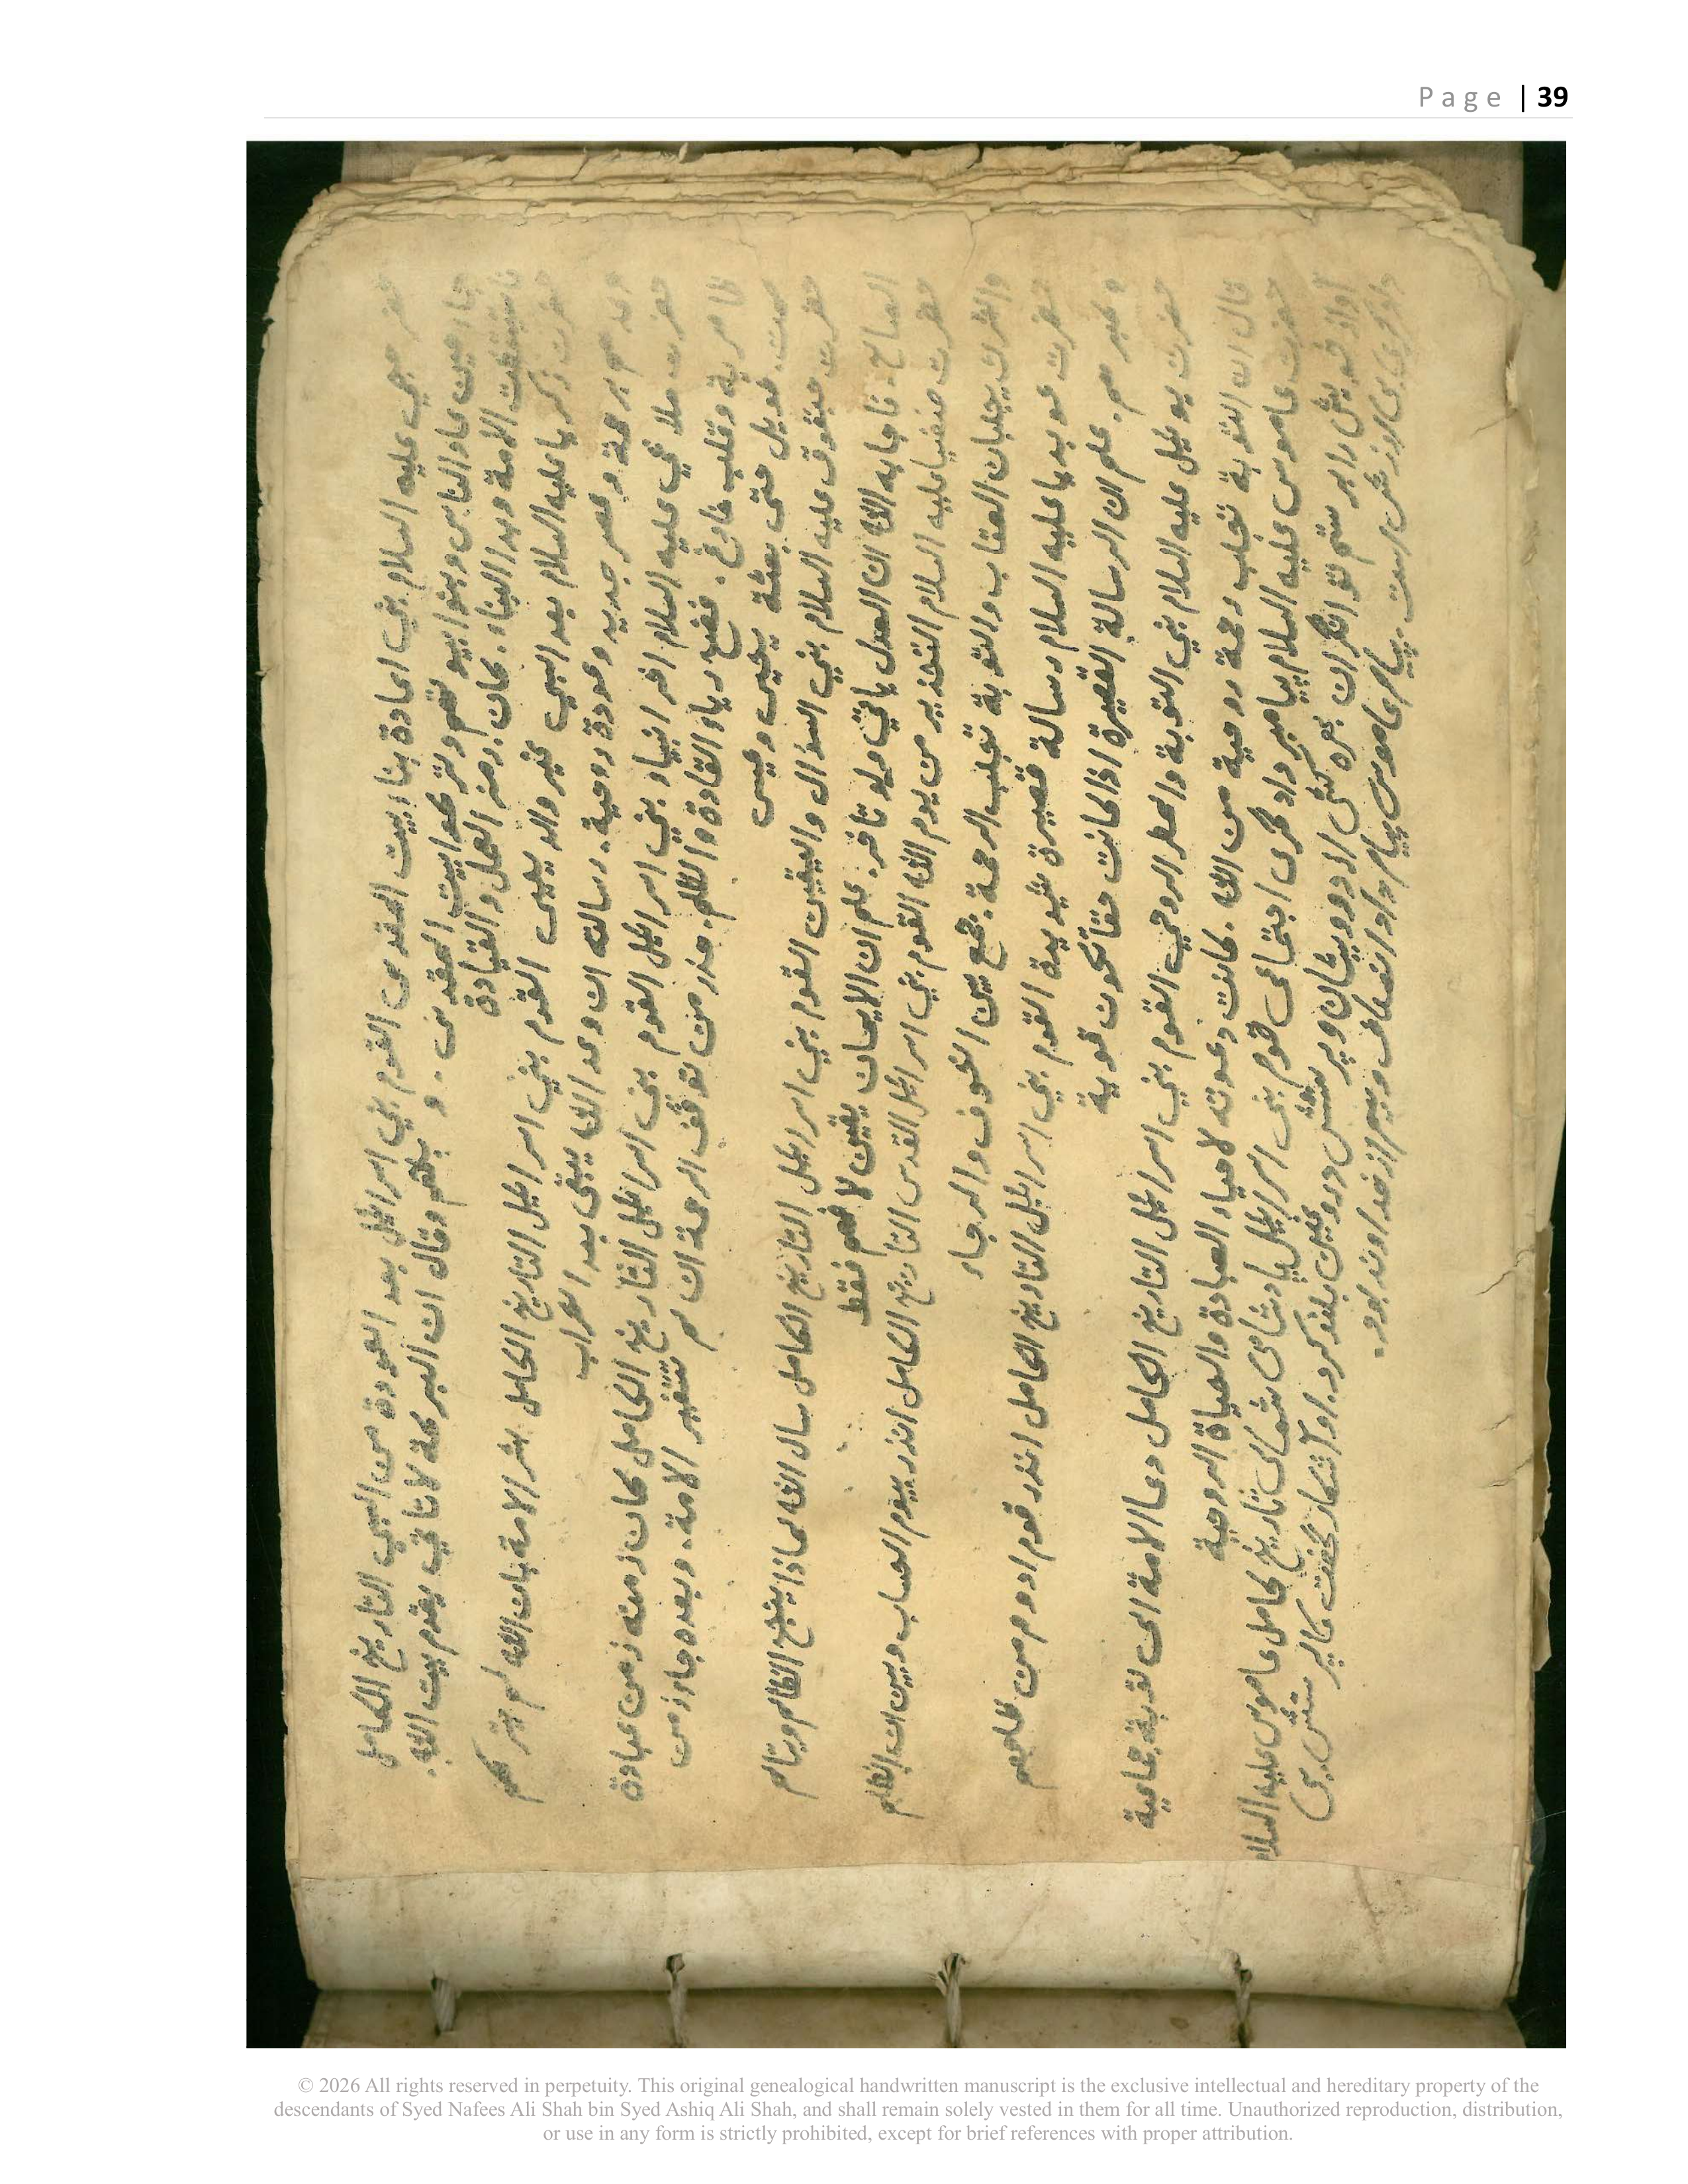 Page | 39
حضر حجي عليه السلام بني اعادة بنا ابيت المقدس القوم بني اسرائيل بعد العودة من السبي التاريخ الكامل
جاء حين عاد الناس وبنوا بيوتهم وتركوا بيت المقدس . و بلغهم وقال ان البركة لا تاتي بقوم بيت الله.
فاستيقظت الامة وبدا البناء. كان زمنه العمل والقيادة
حضرت زكريا عليه السلام بعد السبي عزير والد يحيى القوم بني اسرائيل التاريخ الكامل بشر الامة بان الله لم يترككم
وعدهم برحمة وعصر جديد وعودة روحية. رسالته ان وعد الله يبقى بعد الخراب
حضرت ملاخي عليه السلام اخر انبياء بني اسرائيل القوم بني اسرائيل التاريخ الكامل كان زمنه زمن عبادة
ظاهرية وقلب فارغ. ففضح رياء القادة والظلم. حذر من توقف الرحمة ان لم تتغير الامة. وبعده جاء زمن
صمت طويل حتى بعثة يحيى وعيسى
حضرت حبقوق عليه السلام بني السؤال واليقين القوم بني اسرائيل التاريخ الكامل سال الله لماذا ينجح الظالم ويتالم
الصالح. فاجابه الله ان العدل ياتي ولو تاخر. علم ان الايمان يقين لا فهم فقط
حضرت صفنيا عليه السلام التحذير من يوم الله القوم بني اسرائيل القدس التاريخ الكامل انذر بيوم الحساب وبين ان الظلم
والشرك يجلبان العقاب والتوبة تجلب الرحمة. جمع بين الخوف والرجاء
حضرت عوبديا عليه السلام رسالة قصيرة شديدة القوم بني اسرائيل التاريخ الكامل انذر قوم ادوم من ظلمهم
وكبرهم. علم ان الرسالة القصيرة اذا كانت حقا تكون قوية
حضرت يوئيل عليه السلام بني التوبة والمطر الروحي القوم بني اسرائيل التاريخ الكامل دعا الامة الى توبة جماعية
قال ان التوبة تجلب رحمة روحية من الله. كانت دعوته لاحياء العبادة والحياة الروحية
حضرت عاموس عليه السلام پیامبر دادگری اجتماعی قوم بنی اسرائیل پادشاهی شمالی تاریخ کامل عاموس علیه السلام
آواز خویش را بر ستم توانگران بهره کشی از درویشان و پرستش دروغین بلند کرد. او آشکار گفت که پرستش بی
دادگری بی ارزش است. پیام عاموس پیام داد انصاف و بیم از خداوند بود.
© 2026 All rights reserved in perpetuity. This original genealogical handwritten manuscript is the exclusive intellectual and hereditary property of the
descendants of Syed Nafees Ali Shah bin Syed Ashiq Ali Shah, and shall remain solely vested in them for all time. Unauthorized reproduction, distribution,
or use in any form is strictly prohibited, except for brief references with proper attribution.